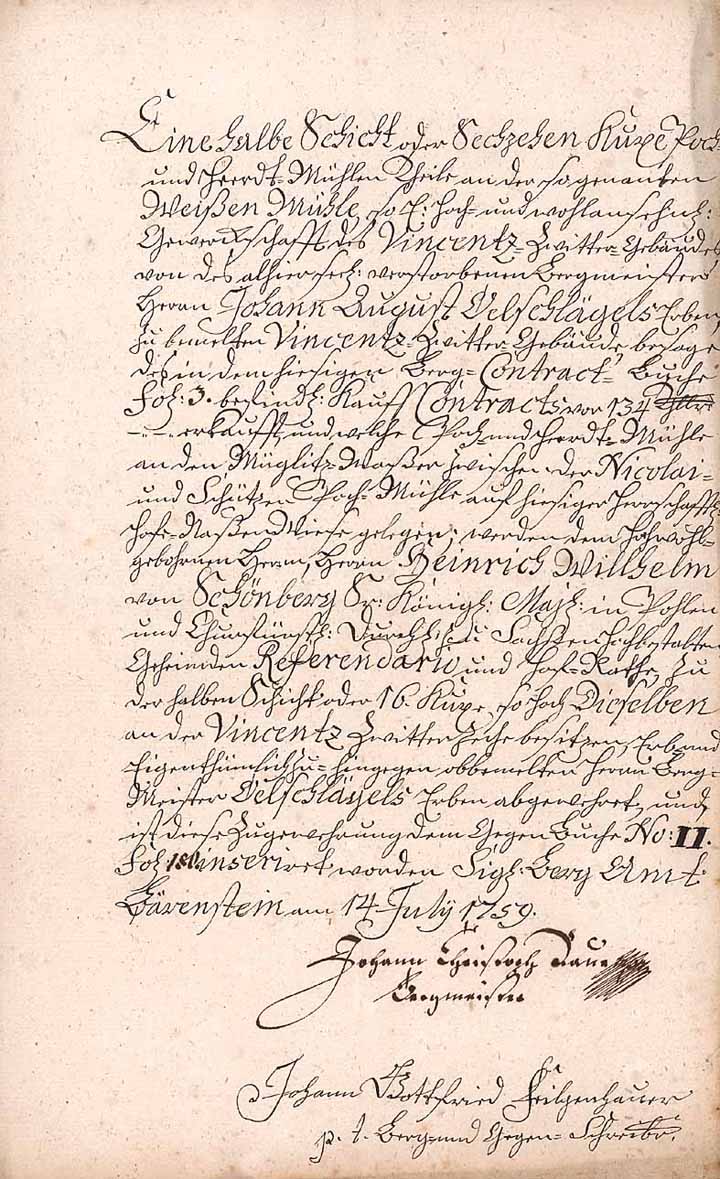 Eine halbe Schicht oder Sechzehen Kuxe Poch-
und Heerdt-Mühlen Theile an der sogenanten
Weißen Mühle, so E: Hoch- und wohlansehnl:
Gewerckschafft des Vincentz Zwitter-Gebäudes
von des alhier seel: verstorbenen Bergmeisters
Herrn Johann August Oelschlägels Erben,
zu bemelten Vincentz-Zwitter-Gebäude, besage
des in dem hiesigen Berg-Contract-Buche
Fol: 3. befindl: Kauff Contracts vor 134 Thlr.
-.-.- erkaufft, und welche Poch- und Heerdt-Mühle
an den Müglitz-Waßer zwischen der Nicolai-
und Schützen Poch-Mühle auf hiesiger Herrschafftl:
Wiese gelegen; werden dem Hochwohl-
gebohrnen Herrn, Herrn Heinrich Willhelm
von Schönberg Sr: Königl: Maj: in Pohlen
und Churfürstl: Durchl: zu Sachßen Hochbestalten
Geheimden Referendario und Hof-Rathe, zu
der halben Schicht oder 16. Kuxe, so hoch Dieselben
an der Vincentz Zwitter Zeche besitzen, Erb- und
Eigenthümlich zu- hingegen obbemelten Herrn Berg-
Meister Oelschlägels Erben abgewehret, und
ist diese Zugewehrung dem Gegen Buche No: II.
Fol: 180. inseriret worden Sigl: Berg Amt
Bärenstein am 14. July 1759.
Johann Christoph
Bergmeister
Johann Gottfried Feilgenhauer
p. t. Berg- und Gegen-Schreibr.